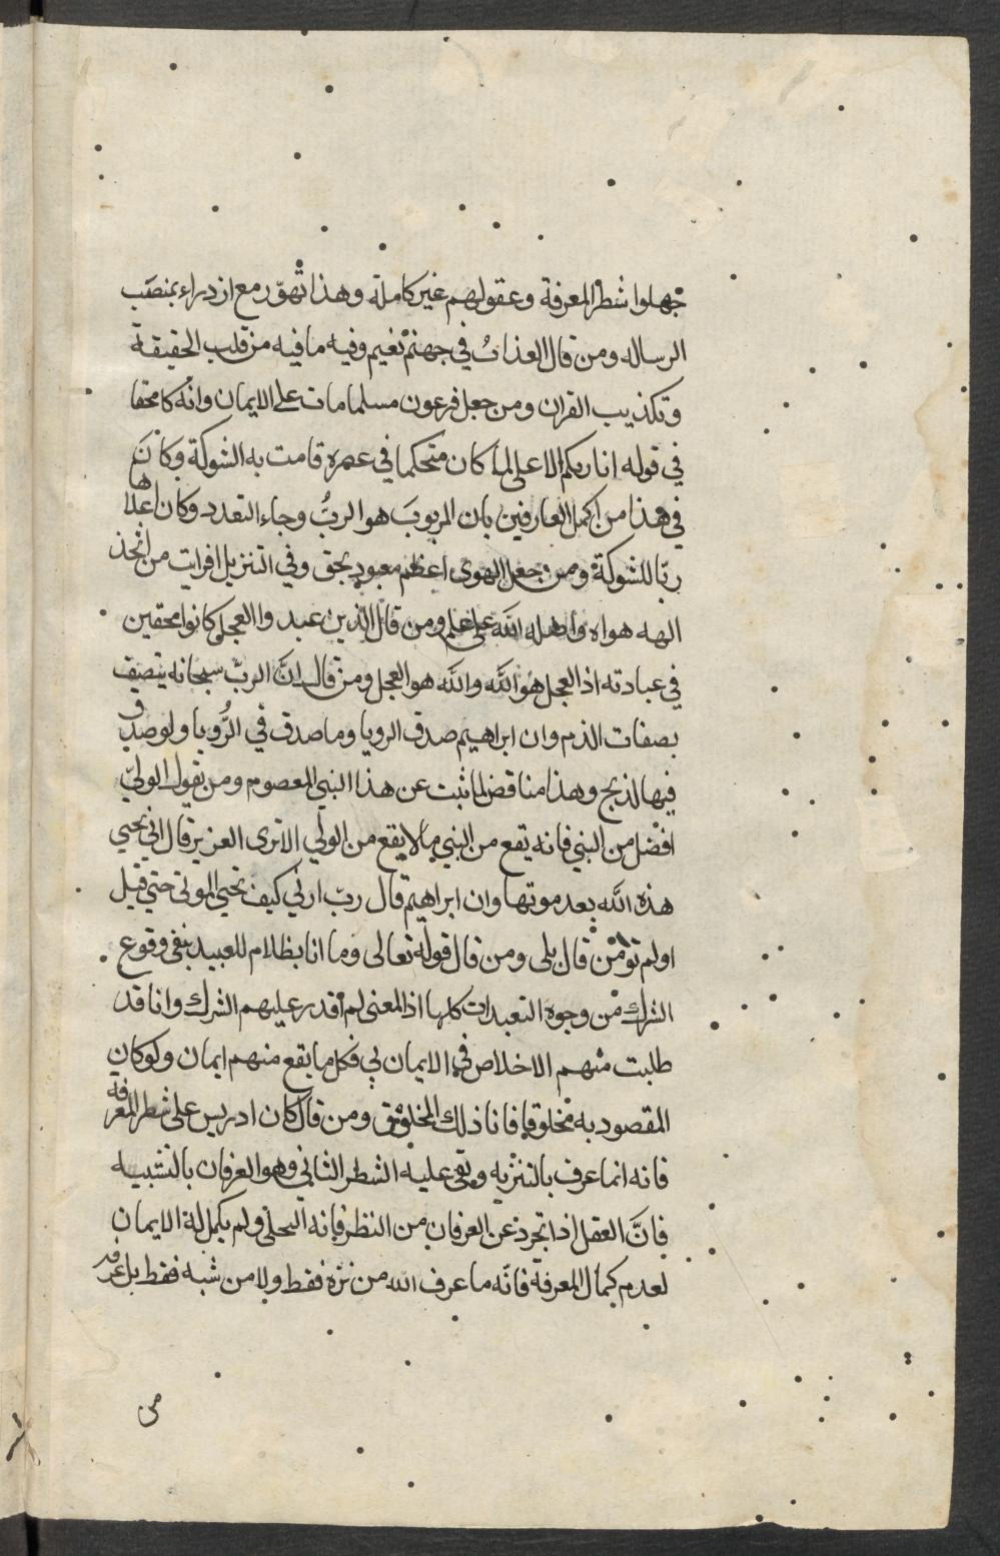 جهلوا شطر المعرفة وعقولهم غير كاملة وهذا تهوّر مع ازدراء بمنصب
الرساله ومن قال العذاب في جهنم نعيم وفيه ما فيه من قلب الحقيقة
وتكذيب القران ومن جعل فرعون مسلما مات على الايمان وانه كان محقا
في قوله انا ربكم الاعلى لما كان متحكما في عصره قامت به الشوكة وكان
في هذا من اكمل العارفين بان المربوب هو الربُّ وجاء التعدد وكان اعلاها
ربّا للشوكة ومن جعل الهوى اعظم معبود بحق وفي التنزيل افرايت من اتخذ
الهه هواه واضله الله على علم ومن قال الذين عبدوا العجل كانوا محقين
في عبادته اذ العجل هو الله والله هو العجل ومن قال انّ الربّ سبحانه يتصف
بصفات الذم وان ابراهيم صدق الرويا وما صدق في الرُّويا ولو صدق
فيها لذبح وهذا مناقض لما ثبت عن هذا النبي المعصوم ومن يقول الوليّ
افضل من النبي فانه يقع من النبي ما لا يقع من الولي الا ترى العزير قال انى يحيي
هذه الله بعد موتها وان ابراهيم قال ربّ ارني كيف تحيي الموتى حتي قيل
اولم تؤمن قال بلى ومن قال قوله تعالى وما انا بظلام للعبيد ينفي وقوع
الشرك من وجوه التعبدات كلها اذ المعنى لم اقدر عليهم الشرك وانا قد
طلبت منهم الاخلاص في الايمان بي فكل ما يقع منهم ايمان ولو كان
المقصود به مخلوقا فانا ذلك المخلوق ومن قال كان ادريس على شطر المعرفة
فانه انما عرف بالتنزيه وبقى عليه الشطر الثاني وهو العرفان بالتشبيه
فانّ العقل اذا تجرد عن العرفان من النظر فإنه التحلى ولم يكمل له الايمان
لعدم كمال المعرفة فانّه ما عرف الله من نزه فقط ولا من شبه فقط بل عرفه
من